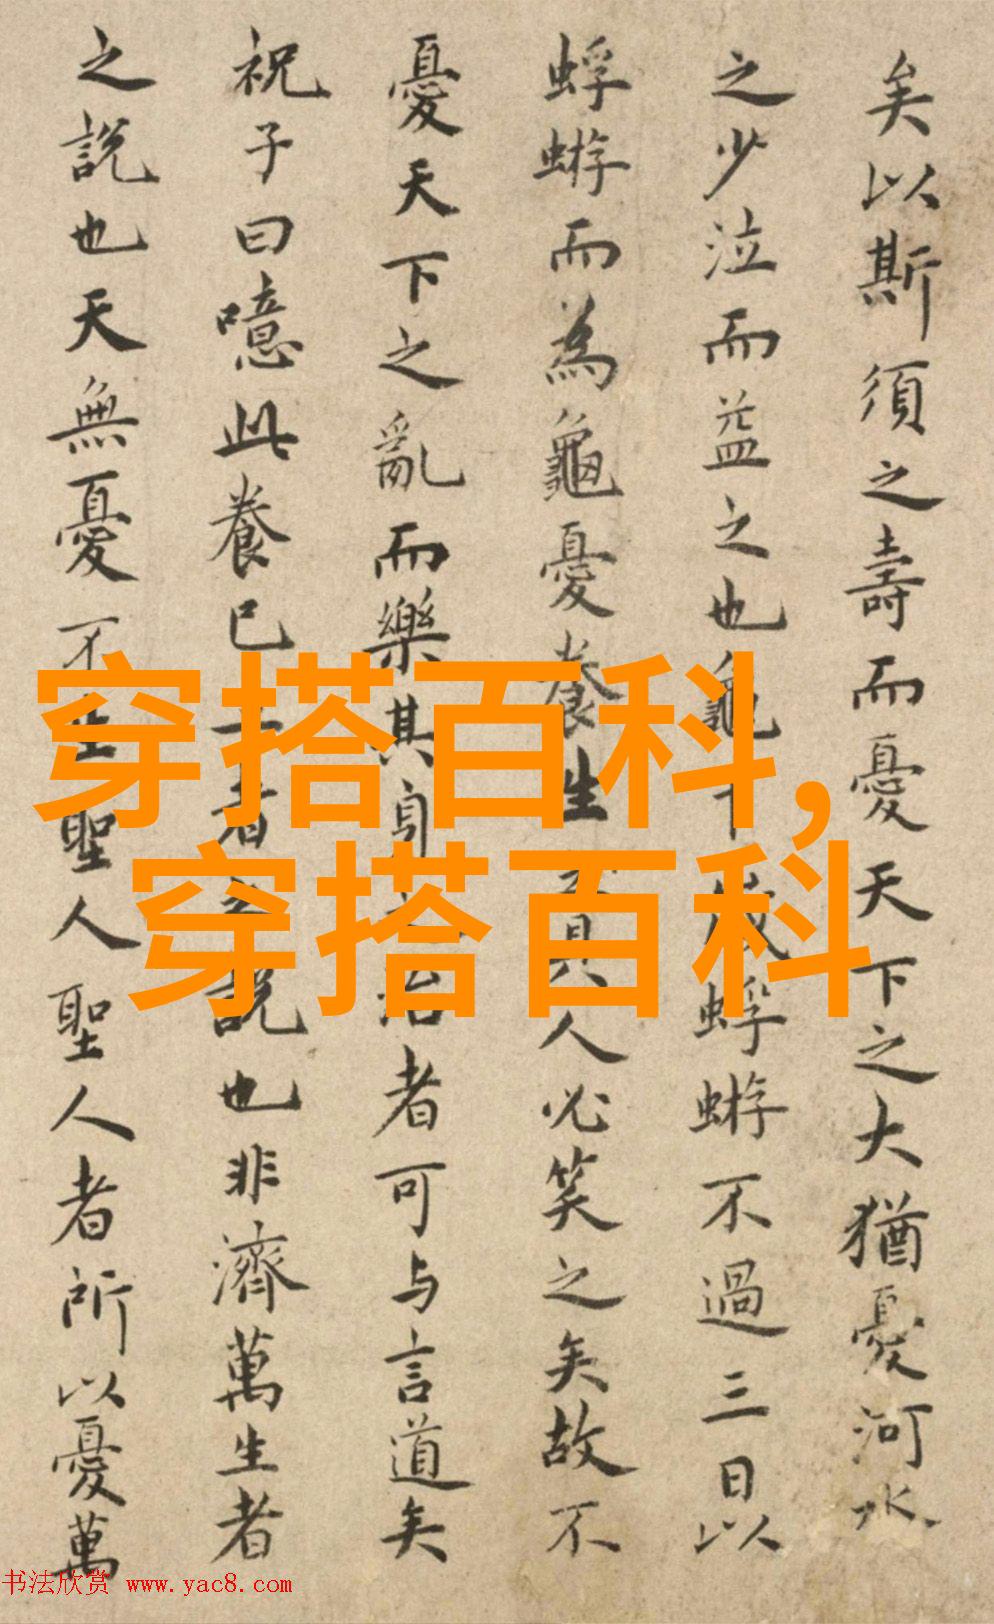 矣以斯須之壽而憂天下之大猶憂河水
之少泣而益之也龜千歲蜉蝣不過三日以
蜉蝣而為龜憂養生具人必笑之矣故不
憂天下之亂而樂其身治者可与言道矣
祝子曰噫此養已者說也非濟萬生者
之說也天無憂不聖人聖人者所以憂萬
穿搭百科,
穿搭百科
书法欣赏 www.yac8.com